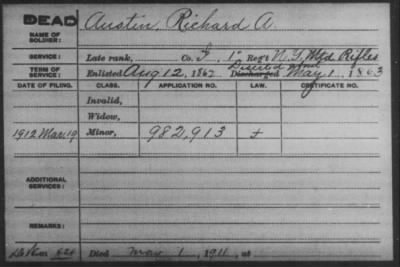 DEAD
Austin, Richard A.
NAME OF SOLDIER:
SERVICE: Late rank, Co. I, 1" Reg't N.Y. Mtd Rifles
TERM OF SERVICE: Enlisted Aug 12, 1862 Discharged Deserted May 1, 1863
DATE OF FILING. CLASS. APPLICATION NO. LAW. CERTIFICATE NO.
Invalid,
Widow,
1912 Mar 19 Minor, 982,913 +
ADDITIONAL SERVICES:
REMARKS:
Died May 1, 1911, at